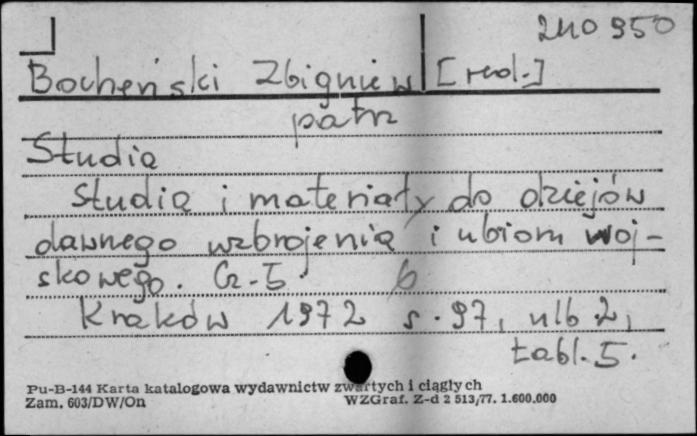 240950
Bocheński Zbigniew [red.]
patrz
Studia
Studia i materiały do dziejów
dawnego uzbrojenia i ubioru woj-
skowego. Cz. 5. 6
Kraków 1972 s. 97, nlb 2,
tabl. 5.
Pu-B-144 Karta katalogowa wydawnictw zwartych i ciągłych
Zam. 603/DW/On WZGraf. Z-d 2 513/77. 1.600.000